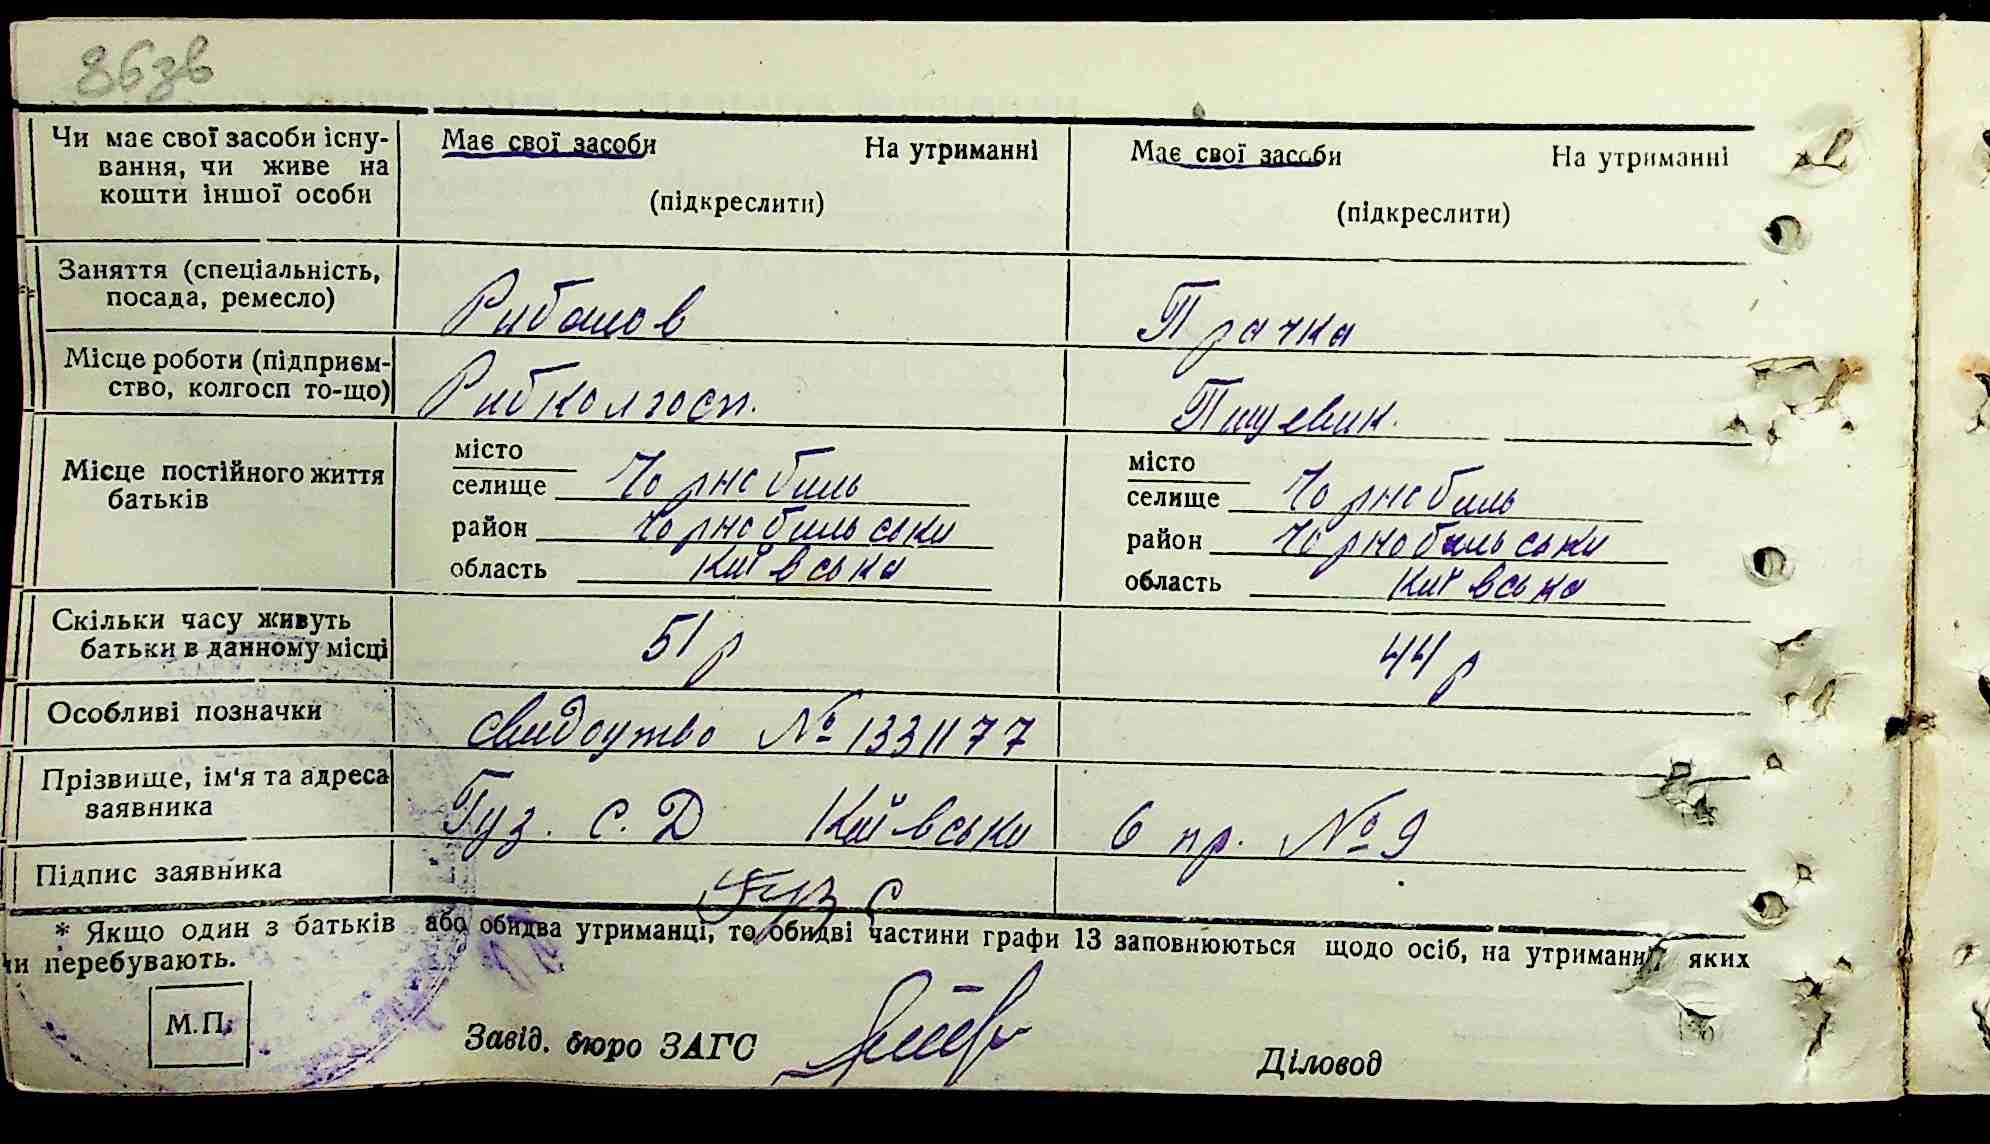 863в
Чи має свої засоби існу- Має свої засоби На утриманні Має свої засоби На утриманні
вання, чи живе на
кошти іншої особи (підкреслити) (підкреслити)
Заняття (спеціальність,
посада, ремесло) Рибалов Прачка
Місце роботи (підприєм-
ство, колгосп то-що) Рибколгосп. Пищевик.
місто місто
Місце постійного життя селище Чорнобиль селище Чорнобиль
батьків район Чорнобильськи район Чорнобильськи
область Київська область Київська
Скільки часу живуть
батьки в данному місці 51 р 44 р
Особливі позначки свидоцтво № 1331177
Прізвище, ім'я та адреса
заявника Гуз. С. Д Київськи 6 пр. № 9
Підпис заявника Гуз С
* Якщо один з батьків або обидва утриманці, то обидві частини графи 13 заповнюються щодо осіб, на утриманні яких
ни перебувають.
М.П.
Завід. бюро ЗАГС Діловод